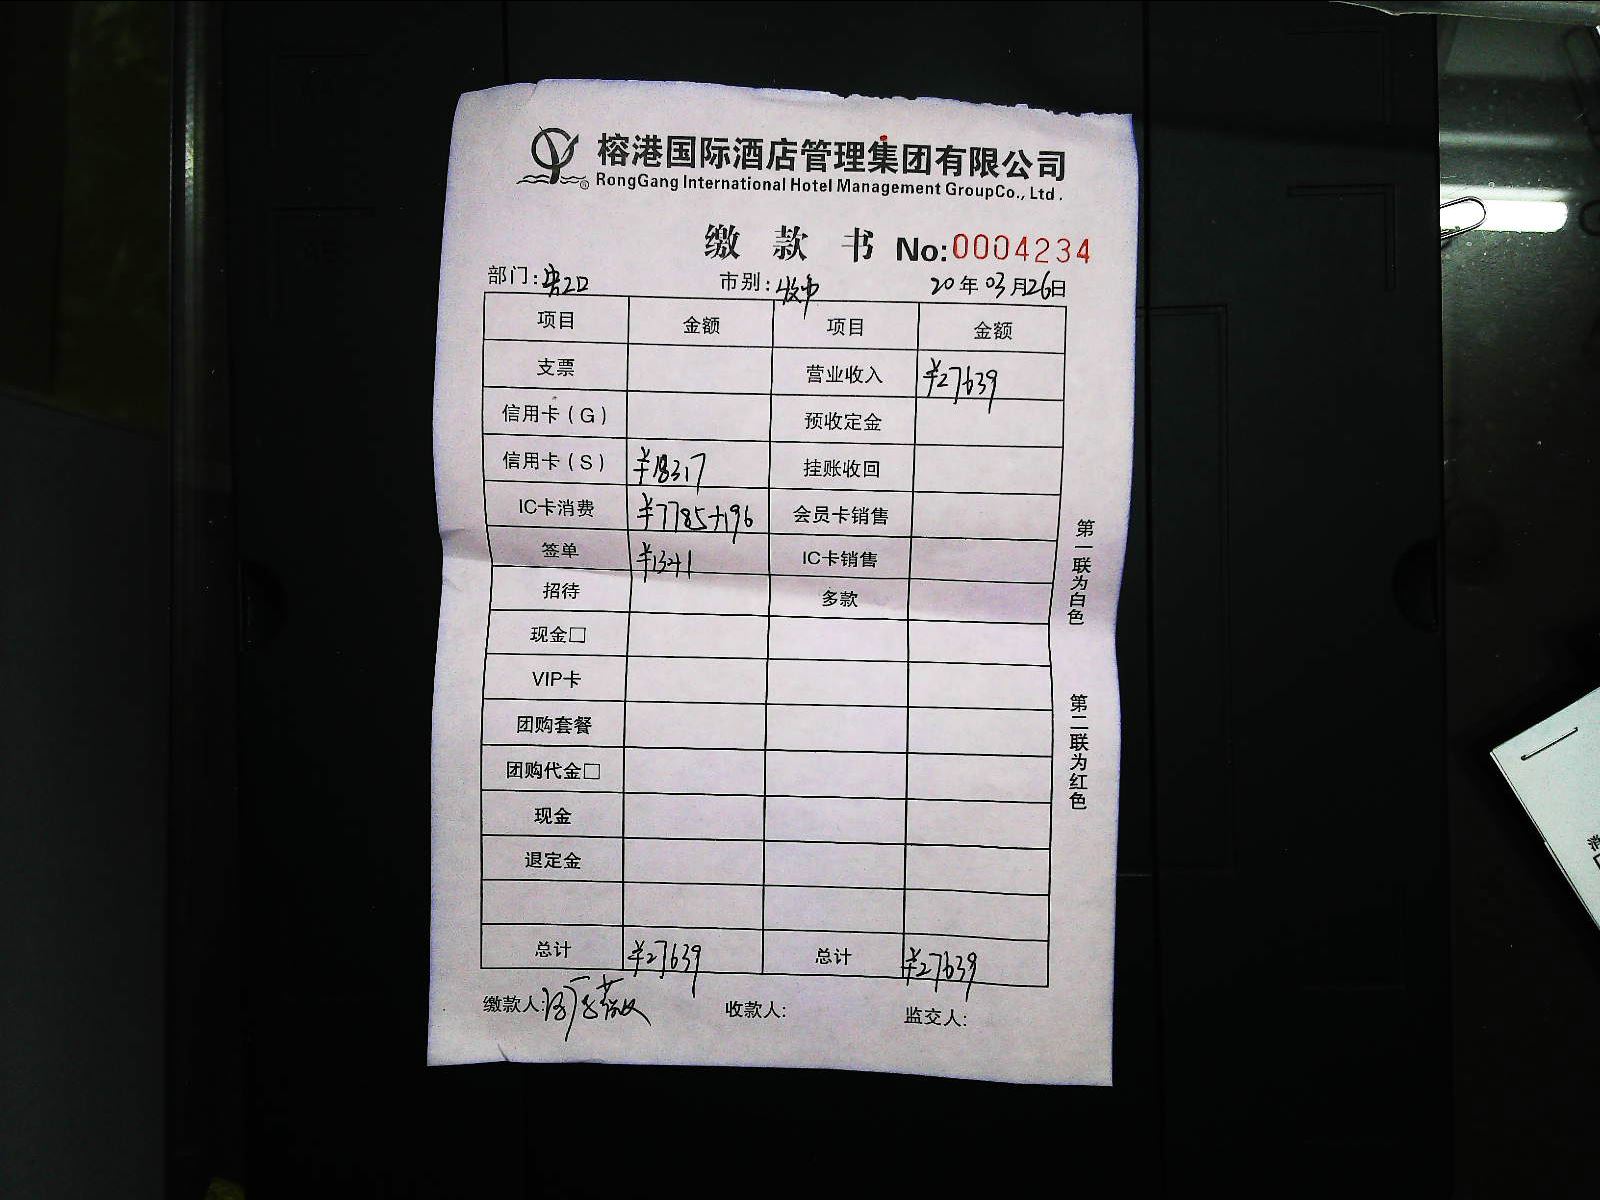 榕港国际酒店管理集团有限公司
RongGang International Hotel Management GroupCo., Ltd.
缴款书 No:0004234
部门: 市别: 20年03月26日
项目 金额 项目 金额
支票 营业收入 ¥27639
信用卡(G) 预收定金
信用卡(S) ¥18317 挂账收回
IC卡消费 ¥7785+196 会员卡销售
签单 ¥1341 IC卡销售
招待 多款
现金□
VIP卡
团购套餐
团购代金□
现金
退定金
总计 ¥27639 总计 ¥27639
缴款人: 收款人: 监交人:
第一联为白色
第二联为红色